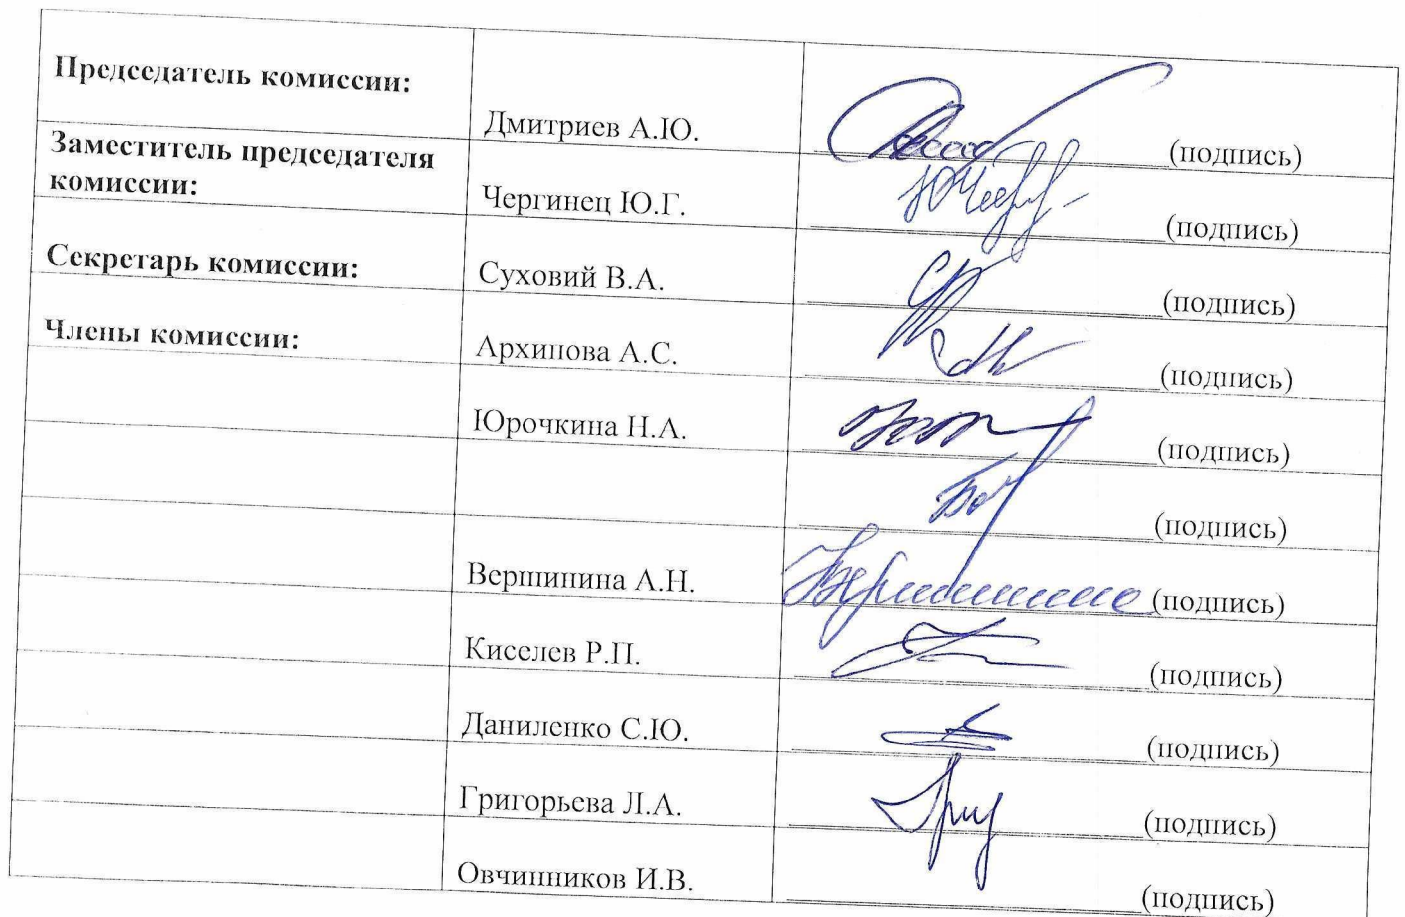 Председатель комиссии:
Дмитриев А.Ю.
(подпись)
Заместитель председателя
комиссии:
Чергинец Ю.Г.
(подпись)
Секретарь комиссии:
Суховий В.А.
(подпись)
Члены комиссии:
Архипова А.С.
(подпись)
Юрочкина Н.А.
(подпись)
(подпись)
Вершинина А.Н.
(подпись)
Киселев Р.П.
(подпись)
Даниленко С.Ю.
(подпись)
Григорьева Л.А.
(подпись)
Овчинников И.В.
(подпись)